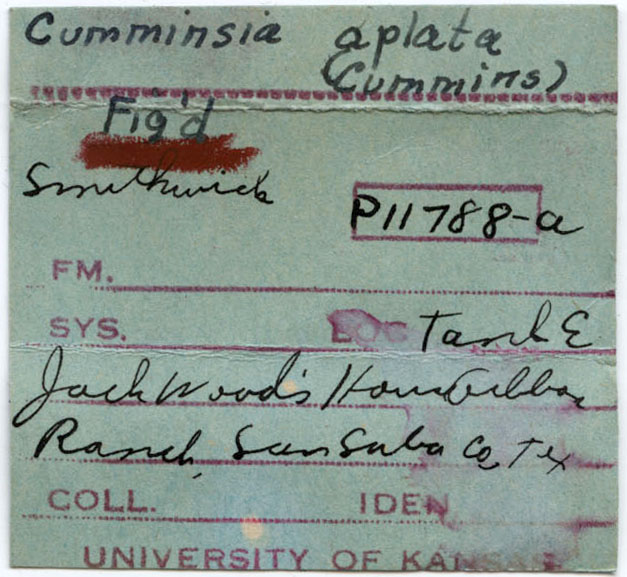 Cumminsia aplata
(Cummins)
Fig'd
Smithwick
P11788-a
FM.
SYS. LOC Tank E
Jack Wood's House Gibbons
Ranch, San Saba Co, Tex
COLL. IDEN
UNIVERSITY OF KANSAS